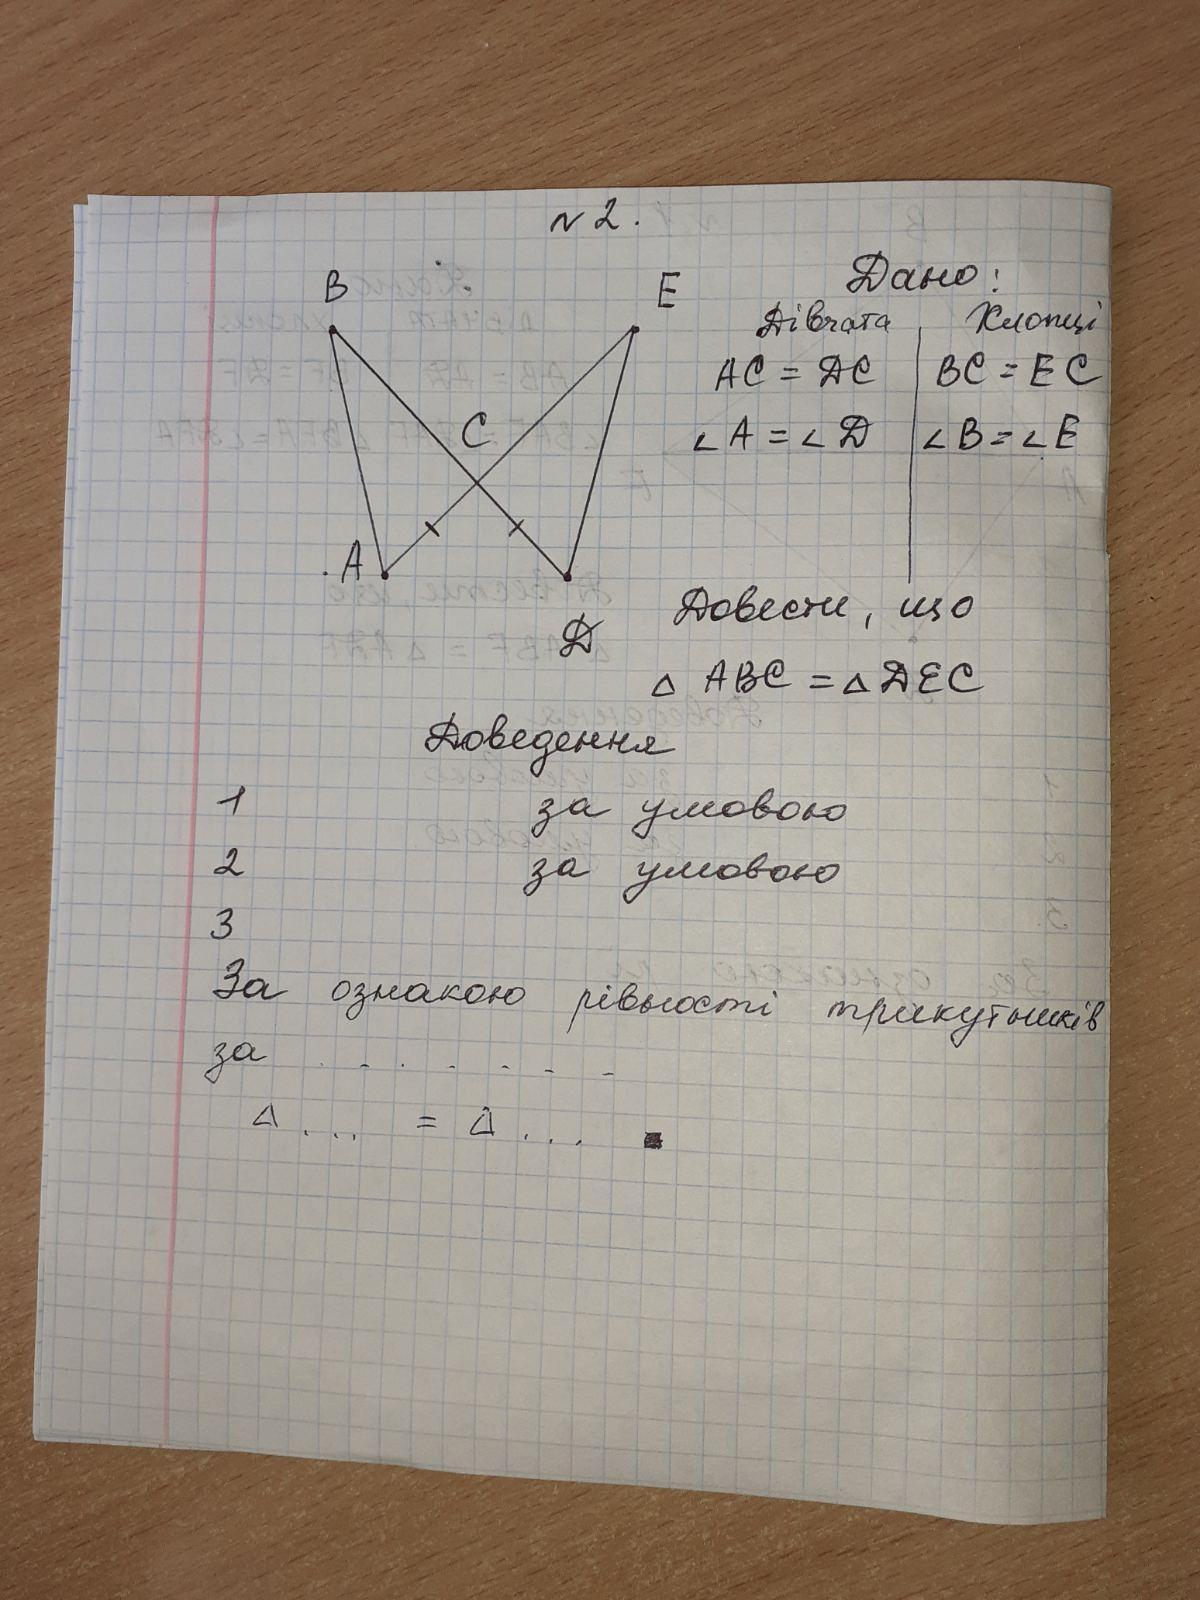 N2.
B
E
Дано:
Дівчата
Хлопці
AC = DC
BC = EC
C
∠A = ∠D
∠B = ∠E
A
D
Довести, що
△ ABC = △ DEC
Доведення
1 за умовою
2 за умовою
3
За ознакою рівності трикутників
за . . . . . . .
△ ... = △ ...